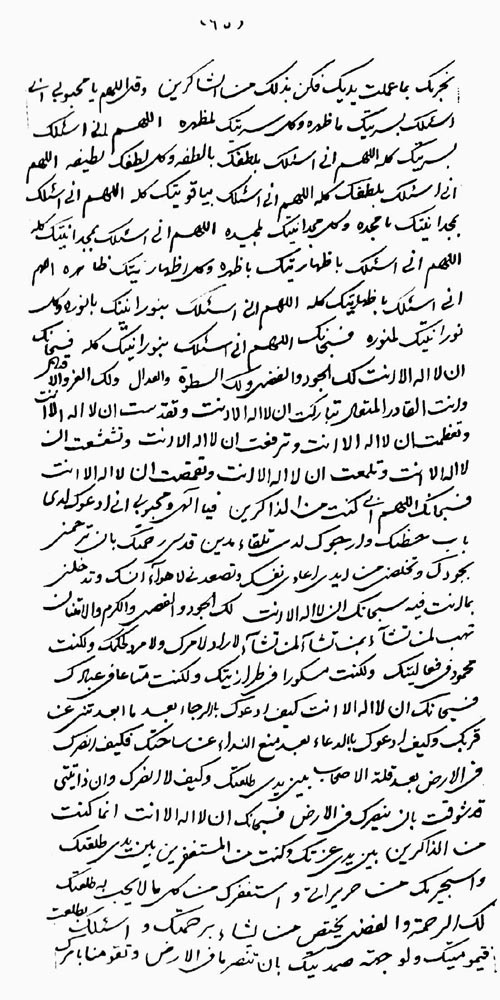 (٦٥)
نجزيك بما عملت يديك فكن بذلك من الشاكرين وقل اللهم يا محبوبي اني
اسئلك بسريتك ما ظهره وكل سريتك لمظهره اللهم اني اسئلك
بسريتك كله اللهم اني اسئلك بلطفك بالطفه وكل لطفك لطيفه اللهم
اني اسئلك بلطفك كله اللهم اني اسئلك بياقوتيتك كله اللهم اني اسئلك
بمجدانيتك بامجده وكل مجدانيتك لمجيده اللهم اني اسئلك بمجدانيتك كله
اللهم اني اسئلك باظهاريتك باظهره وكل اظهاريتك ظاهره اللهم
اني اسئلك باظهاريتك كله اللهم اني اسئلك بنورانيتك بانوره وكل
نورانيتك لمنوره فسبحانك اللهم اني اسئلك بنورانيتك كله فسبحانك
ان لا اله الا انت لك الجود والفضل ولك السطوة والعدال ولك العز والاقدار
وانت القادر المتعال تباركت ان لا اله الا انت وتقدست ان لا اله الا انت
وتعظمت ان لا اله الا انت وترفعت ان لا اله الا انت وتشعشعت ان
لا اله الا انت وتلمعت ان لا اله الا انت وتقمصت ان لا اله الا انت
فسبحانك اللهم اني كنت من الذاكرين فيا الهي ومحبوبي اني ادعوك لدى
باب حظتك وارجوك لدى تلقاء مدين قدس رحمتك بان ترحمني
بجودك وتخلصني من ايدي اعادي نفسك وتصعدني لاهواء انسك وتدخلني
بما انت فيه سبحانك ان لا اله الا انت لك الجود والفضل والكرم والامتنان
تهب لمن تشآء بمن تشآء لمن تشآء لا راد لامرك ولا مرد لحكمك ولكنت
محمود في فعاليتك ولكنت مشكورا في طرازيتك ولكنت متباعا في عبادك
فسبحانك ان لا اله الا انت كيف ادعوك بالرجاء بعد ما ابعدتني عن
قربك وكيف ادعوك بالدعاء بعد منع النداء عن ساحتك فكيف انصرك
في الارض بعد قلة الاصحاب بين يدي طلعتك وكيف لا انصرك وان ذاتيتي
قد شوقت بان ينصرك في الارض فسبحانك ان لا اله الا انت انما كنت
من الذاكرين بين يدي عزتك وكنت من المستغفرين بين يدي طلعتك
واستجيرك من جريراتي و استغفرك من كل ما لا يحب به طلعتك
لك الرحمة والفضل يختص من تشاء برحمتك و اسئلك بطلعت
قيموميتك ولوجهة صمديتك بان تنصرنا في الارض وتقومنا بامرك